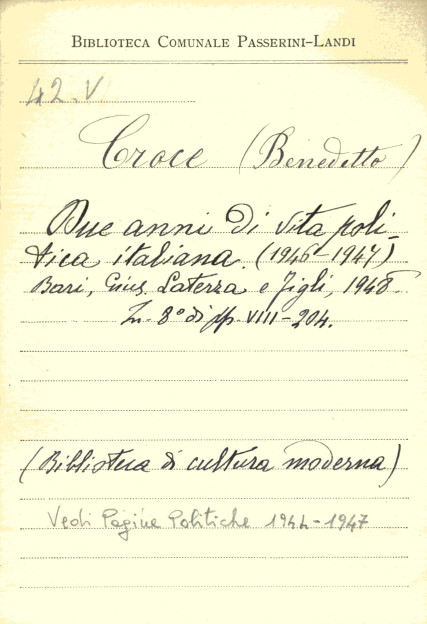 BIBLIOTECA COMUNALE PASSERINI-LANDI
42.V
Croce (Benedetto)
Due anni di vita poli-
tica italiana. (1946-1947)
Bari, Gius. Laterza e Figli, 1948
In-8° di pp. VIII-204.
(Biblioteca di cultura moderna)
Vedi Pagine Politiche 1944-1947